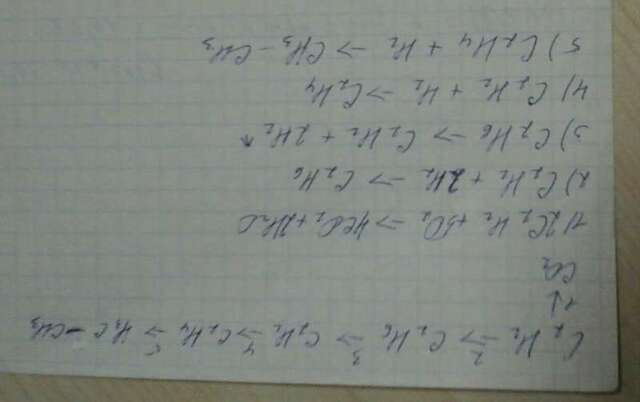 C₂H₂ →² C₂H₆ →³ C₂H₂ →⁴ C₂H₄ →⁵ H₃C-CH₃
1↓
CO₂
1) 2C₂H₂ + 5O₂ → 4CO₂ + 2H₂O
2) C₂H₂ + 2H₂ → C₂H₆
3) C₂H₆ → C₂H₂ + 2H₂↑
4) C₂H₂ + H₂ → C₂H₄
5) C₂H₄ + H₂ → CH₃-CH₃